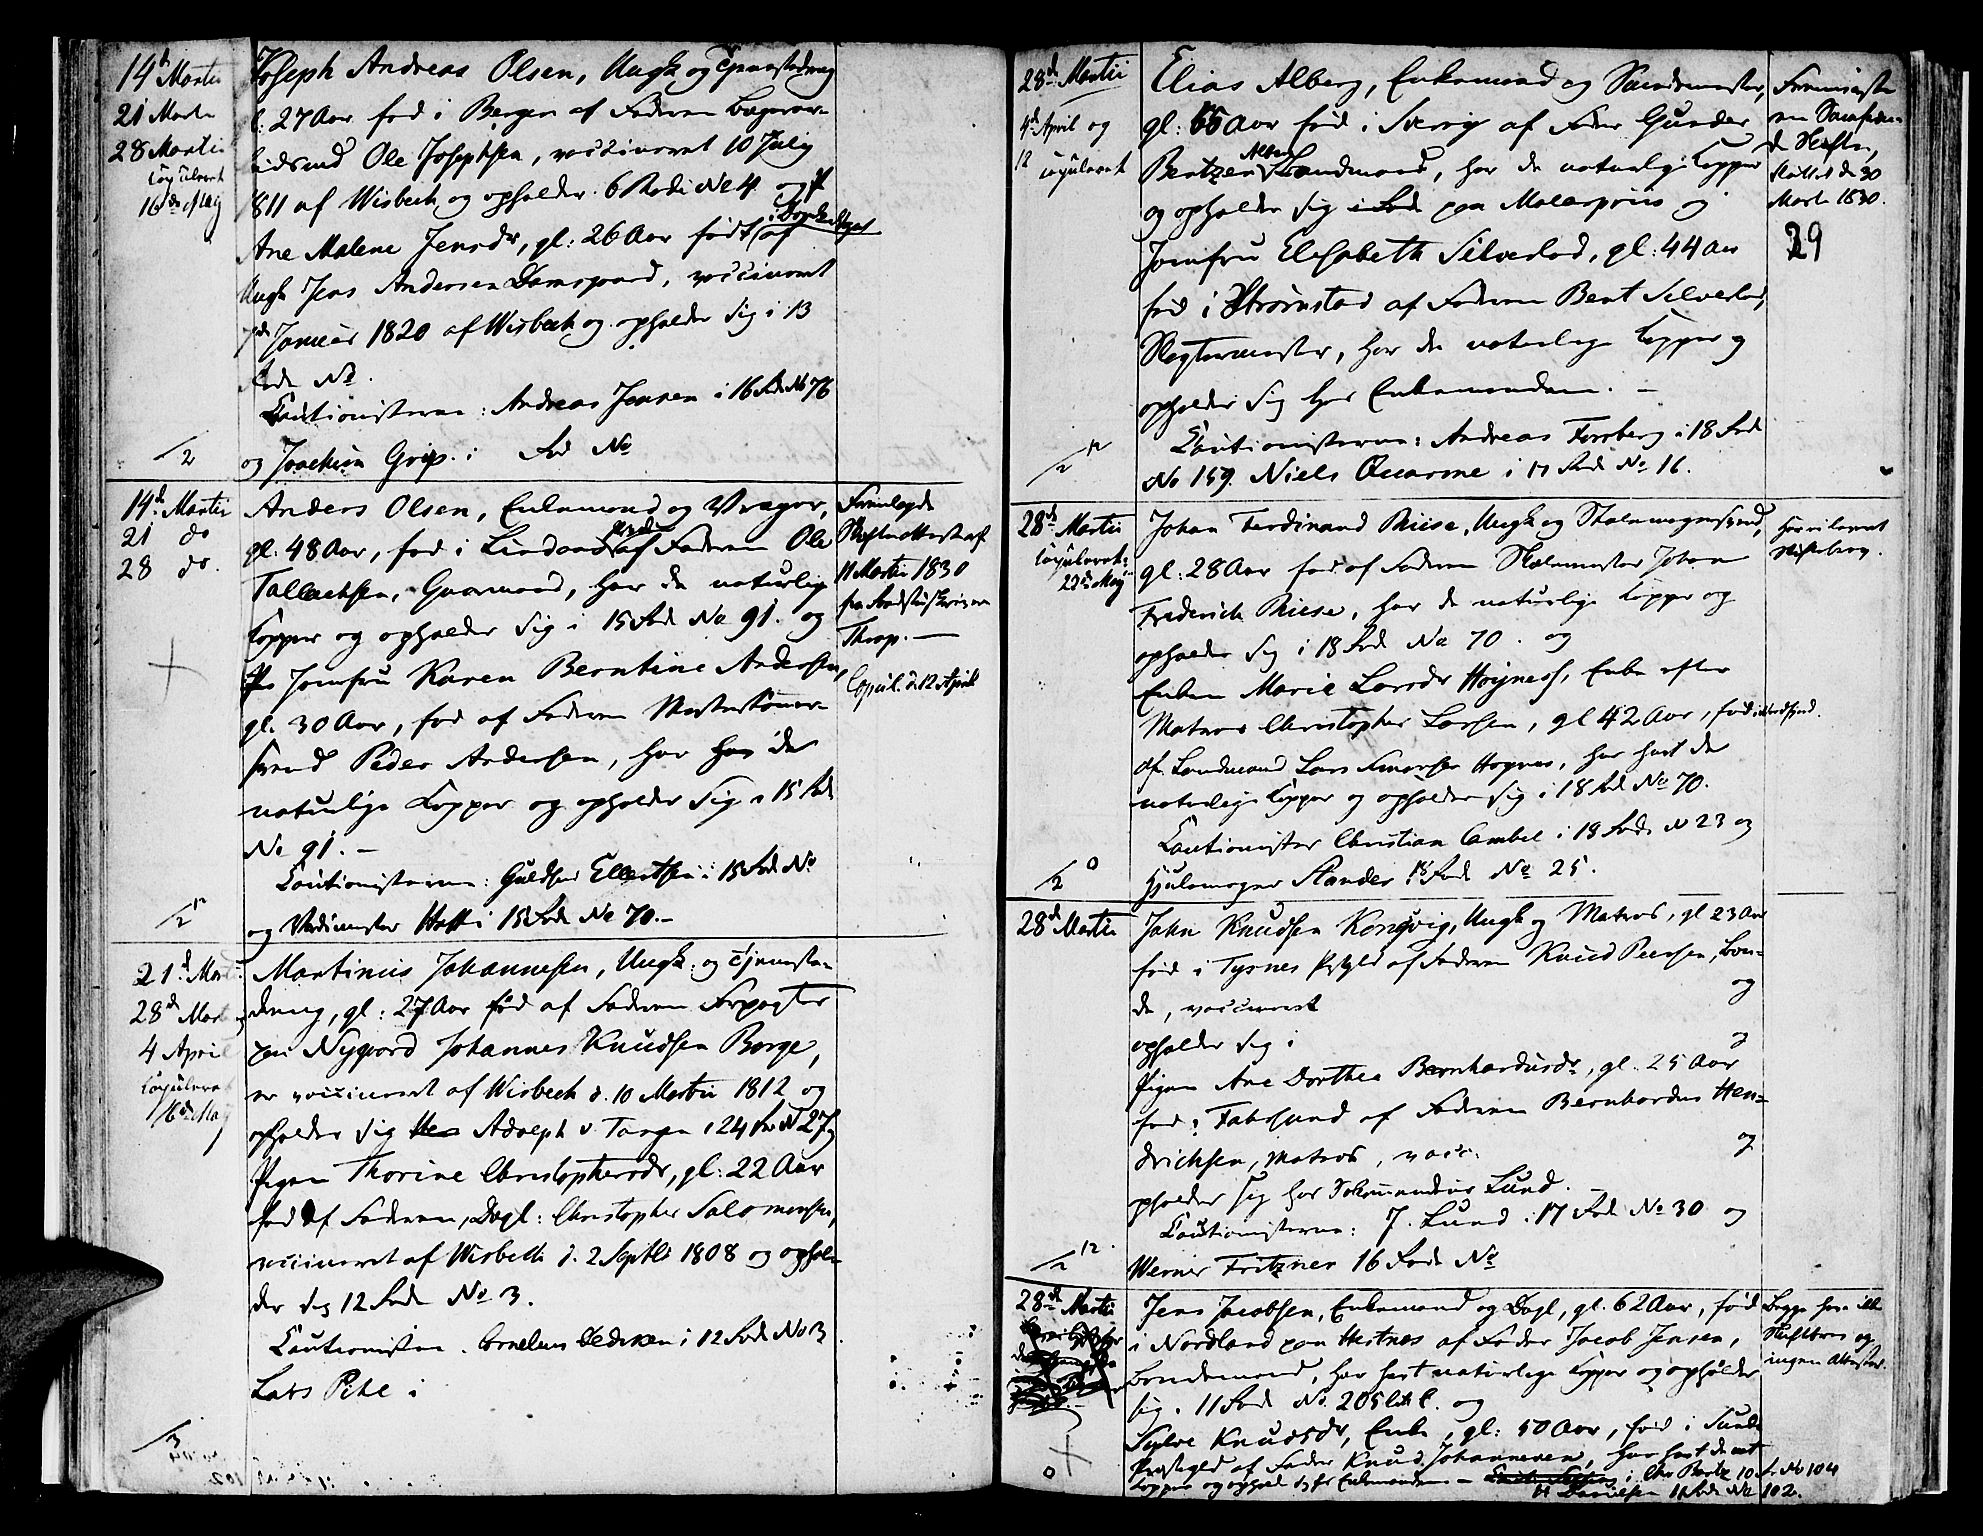 14d Martii
21 Martii
28 Martii
Copuleret
16de May
Joseph Andreas Olsen, Ungk og
gl: 27 Aar fød i Bergen af Faderen
Ole Josephsen, vaccineret 10 July
1811 af Wisbech og opholder 6 Rode No 4 og
Ane Malene Jensdr, gl: 26 Aar født af
Ungk Jens Andersen Damsgaard, vaccineret
7de Januar 1820 af Wisbech og opholder sig i 13
Rode No.
Cautionisterne: Andreas Jensen i 16 Rode No 76
og Joachim Grip i Rode No
14d Martii
21 do
28 do
Anders Olsen, Enkemand og Vrager,
gl: 48 Aar, fød i Lindaas af Faderen Ole
Tallachsen, Gaarmand, har de naturlige
Kopper og opholder sig i 15 Rode No 91. og
Jomfru Karen Berntine Andersen,
gl. 30 Aar, fød af Faderen
Svend Peder Andersen, har de
naturlige Kopper og opholder sig i 15 Rode
No 91. —
Cautionisterne: Guldsmed Ellertsen i 15 Rode No
og Holt i 15 Rode No 70.—
Fremlagde
Skifte Attest af
11 Martii 1830
fra
Throp. —
Copul. d. 12 April
21d Mart:
28d Mart og
4 April
Copuleret
16de May
Martinus Johannesen, Ungk. og Tjeneste-
dreng, gl: 27 Aar fød af Faderen Forpagter
paa Nygaard Johannes Knudsen Borge,
er vaccineret af Wisbech d. 10 Martii 1812 og
opholder sig Adolph v Tangen i 24 Rode No 27 og
Pigen Thorine Christophersdr, gl: 22 Aar
fød af Faderen, Dagl: Christopher Salomonsen,
vaccineret af Wisbech d. 2 Septbr 1808 og ophol-
der sig 12 Rode No 3.
Cautionister. Cornelius Pedersen i 12 Rode No 3
Lars Pihl i
28d Martii
4d April og
12
copuleret
Elias Alberg, Enkemand og
gl: 55 Aar fød i Sverig af Fader Gunder
Bentzen Landmand, har de naturlige Kopper
og opholder sig paa og
Jomfru Elisabeth Silverlod, gl: 44 Aar
fød i Strømstad af Faderen Bent Silverlod,
Slagtermester, har de naturlige Kopper og
opholder sig hos Enkemanden. —
Cautionisterne: Andreas Forsberg i 18 Rode
No 159. Niels Quarme i 17 Rode No 16.
d 30
Mart 1830.
29
28d Martii
Copuleret
23de May
Johan Ferdinand Riese, Ungk og
gl: 28 Aar fød af Faderen Johan
Frederich Riese, har de naturlige Kopper og
opholder sig i 18 Rode No 70. og
Enken Marie Larsdr Høynes, Enke efter
Matros Christopher Larsen, gl 42 Aar, fød i
af Landmand Lars Høynes, har havt de
naturlige Kopper og opholder sig i 18 Rode No 70.
Cautionister Christian Cambel i 19 Rode N 23 og
Hjulemager Stander 18 Rode No 25.
28d Martii
John Knudsen Kongsvig, Ungk og Matros, gl 23 Aar
fød i Tysnes af Faderen Knud Peersen, Bon-
de, vaccineret og
opholder sig i og
Pigen Ane Dorthea Bernhardusdr, gl. 25 Aar
fød i Farsund af Faderen Bernhardus Hen-
drichsen, Matros, vacc: og
opholder sig hos Lund.
Cautionisterne: J. Lund i 17 Rode No 30 og
Werner Fritzner 16 Rode No
28d Martii
Jens Jacobsen, Enkemand og Dagl, gl. 62 Aar, fød
i Nordland paa af Fader Jacob Jensen,
Bondemand, har havt naturlige Kopper og opholder
sig. 11 Rode No. 205 lit C. og
Sylve Knudsdr, Enke, gl: 50 Aar, fød i
Præstegield af Fader Knud Johannesen, har havt de nat
Kopper og ophold sig hos Enkemanden — i Chr Bertz 10 Rode No 104
11 Rode No 102.
Begge har ikke
og
ingen Attester